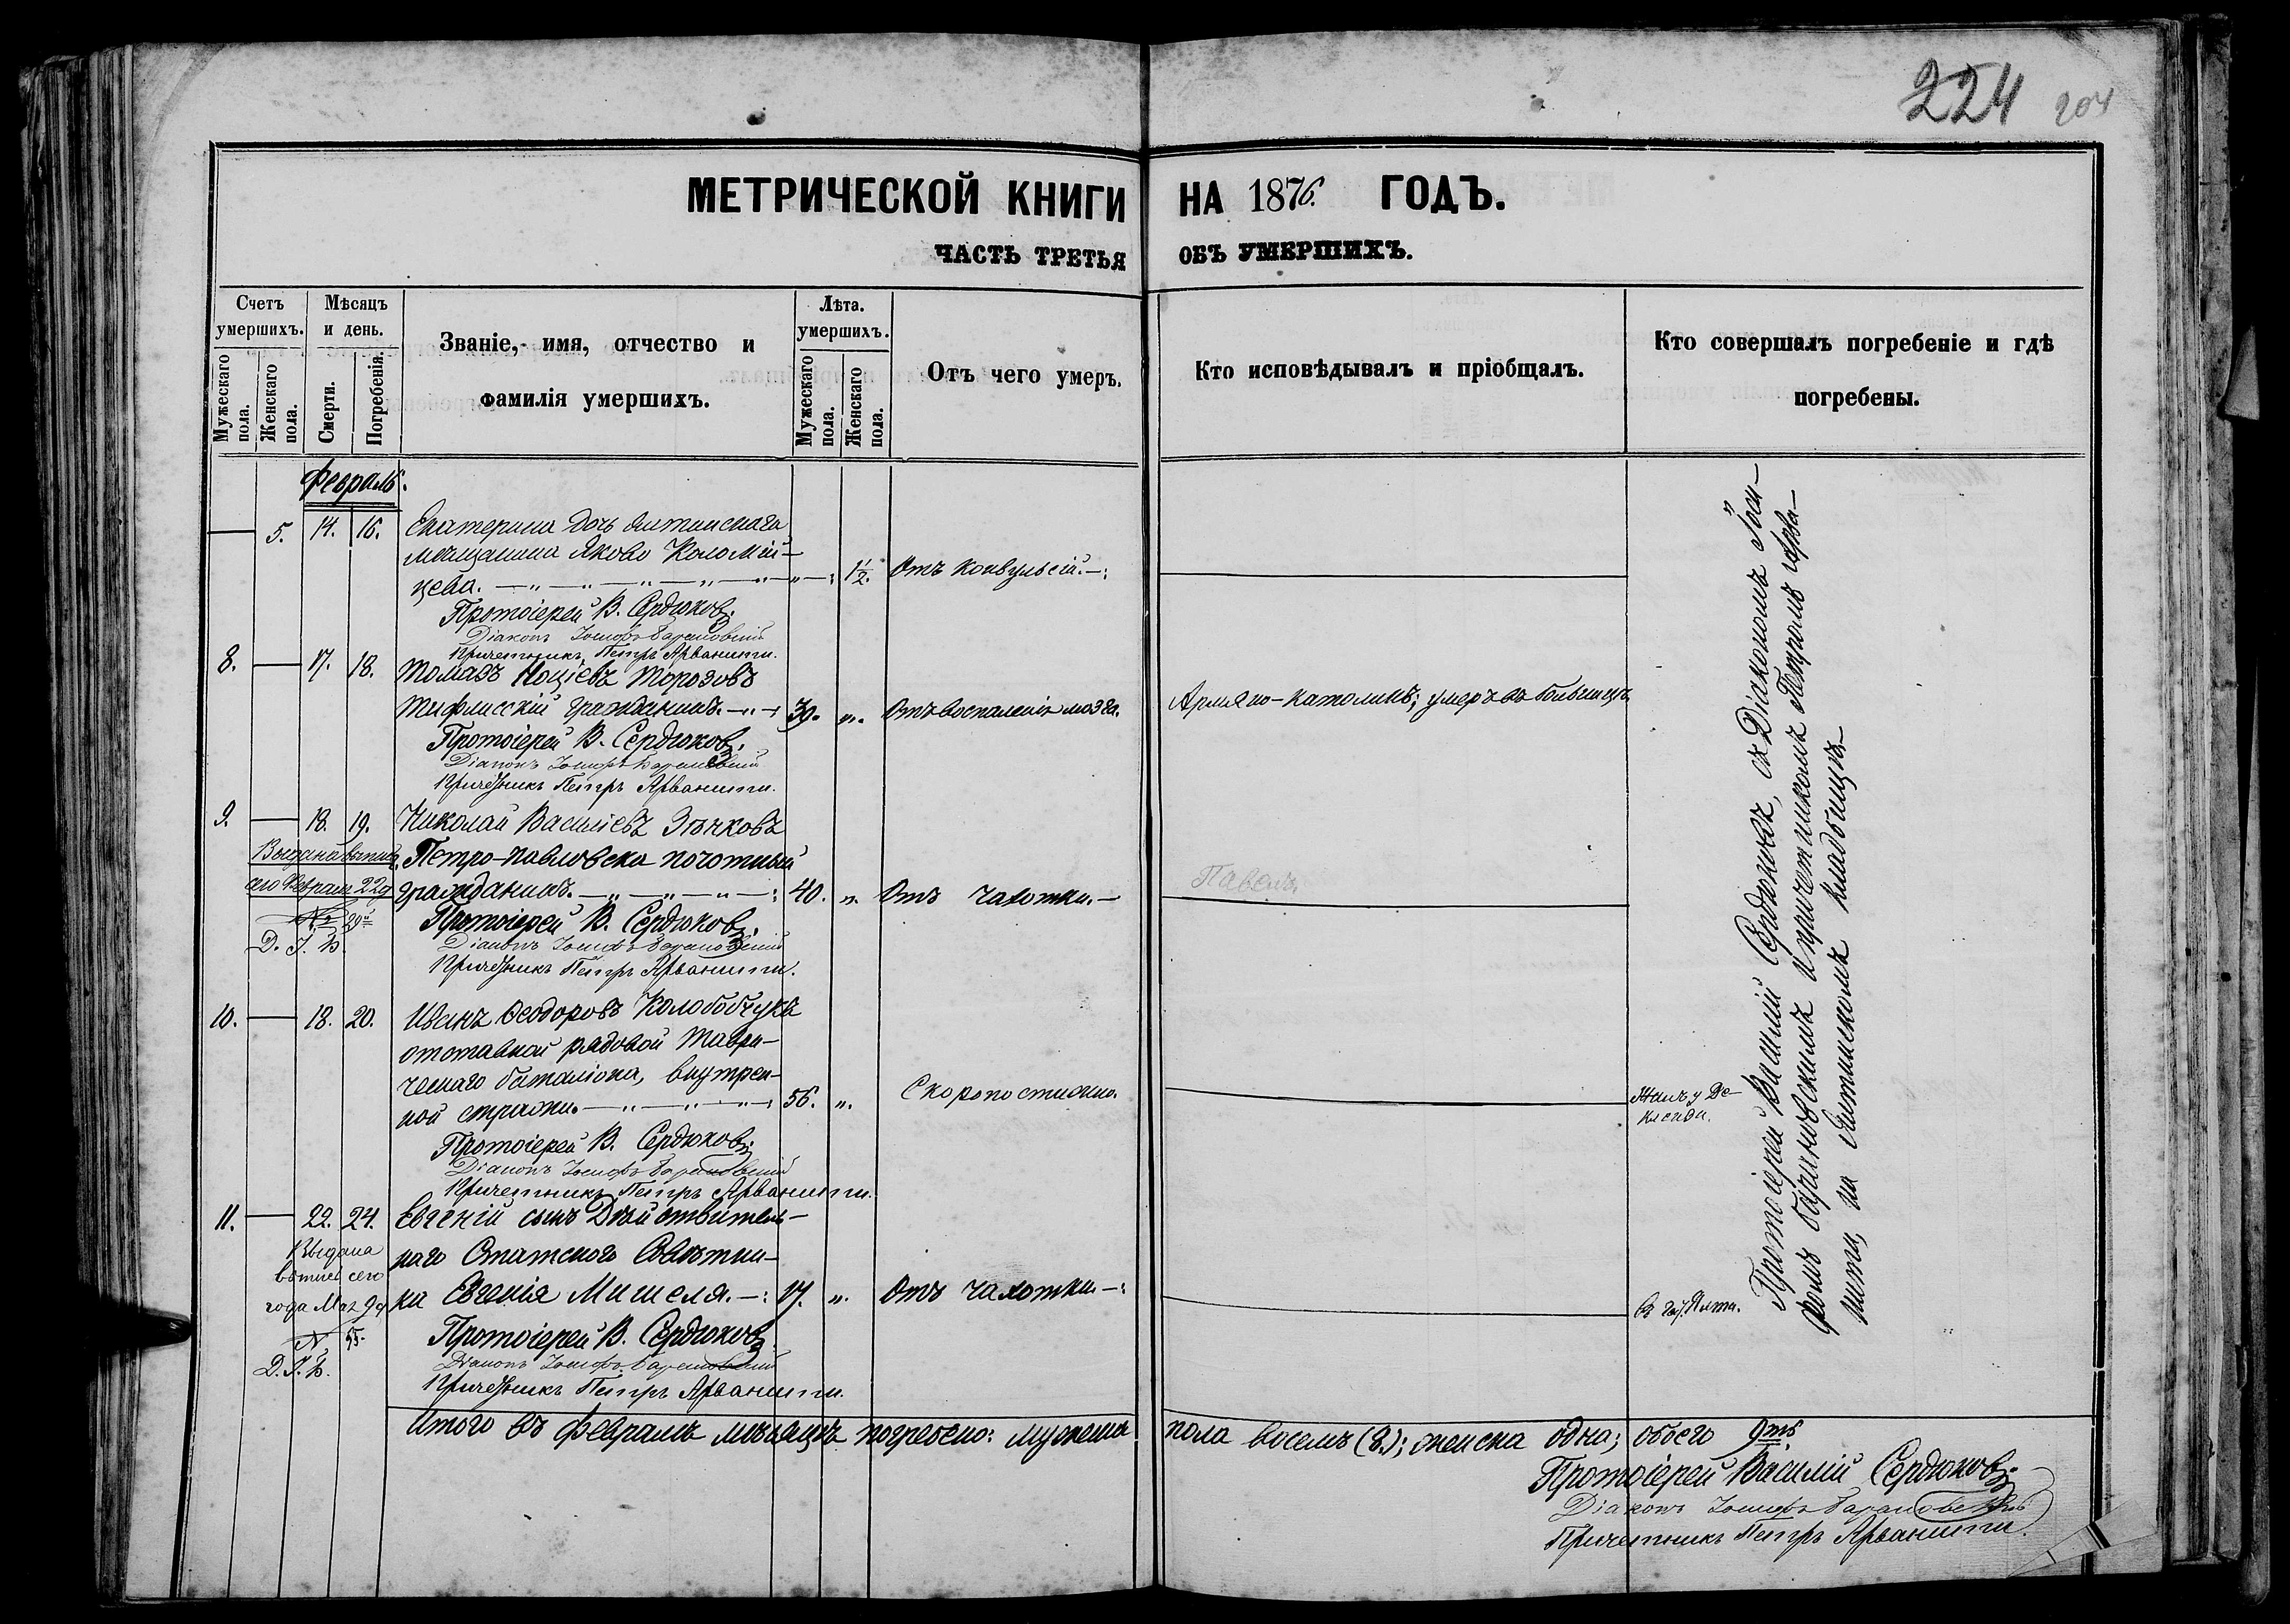 224 204
МЕТРИЧЕСКОЙ КНИГИ НА 1876. ГОДЪ.
ЧАСТЬ ТРЕТЬЯ ОБЪ УМЕРШИХЪ.
Счетъ умершихъ.
Мужескаго пола.
Женскаго пола.
Мѣсяцъ и день.
Смерти.
Погребенія.
Званіе, имя, отчество и
фамилія умершихъ.
Лѣта. умершихъ.
Мужескаго пола.
Женскаго пола.
Отъ чего умеръ.
Кто исповѣдывалъ и пріобщалъ.
Кто совершалъ погребеніе и гдѣ
погребены.
Февраль.
5. 14. 16. Екатерина дочь Ялтинскаго
мѣщанина Якова Коломій-
цева. 1½. Отъ конвульсій.
Протоіерей В. Сердюковъ.
Діаконъ Іосифъ Барановскій
Причетникъ Петръ Арванити.
8. 17. 18. Томазъ Торозовъ
Тифлисскій гражданинъ. 39. „. Отъ воспаленія мозга. Армяно-католикъ; умеръ въ больницѣ
Протоіерей В. Сердюковъ.
Діаконъ Іосифъ Барановскій
Причетникъ Петръ Арванити.
9. 18. 19. Николай Василіевъ Зѣнковъ
Петро-павловска почотный
гражданинъ. 40. „. Отъ чахотки. Павелъ
Выдана выпись
сего Февраля 22д
№ 29й
Д. І. Б.
Протоіерей В. Сердюковъ.
Діаконъ Іосифъ Барановскій
Причетникъ Петръ Арванити.
10. 18. 20. Иванъ Ѳеодоровъ Колобобчукъ
отставной рядовой Таври-
ческаго баталіона, внутрен-
ной стражи. 56. „. Скоропостижно. Жилъ у
Протоіерей В. Сердюковъ.
Діаконъ Іосифъ Барановскій
Причетникъ Петръ Арванити.
11. 22. 24. Евгеній сынъ Дѣйствитель-
наго Статскаго Совѣтни-
ка Евгенія Мишеля. 17. „. Отъ чахотки. Ялта.
Выдана
сего
года Мая 9д
№ 55.
Д. І. Б.
Протоіерей В. Сердюковъ.
Діаконъ Іосифъ Барановскій
Причетникъ Петръ Арванити.
Протоіерей Василій Сердюковъ, съ Діакономъ Іоси-
фомъ Барановскимъ и причетникомъ Петромъ Арва-
нити, на Ялтинскомъ кладбищѣ.
Итого въ Февралѣ мѣсяцѣ погребено: мужеска пола восемъ (8.); женска одна; обоего 9ть.
Протоіерей Василій Сердюковъ.
Діаконъ Іосифъ Барановскій
Причетникъ Петръ Арванити.